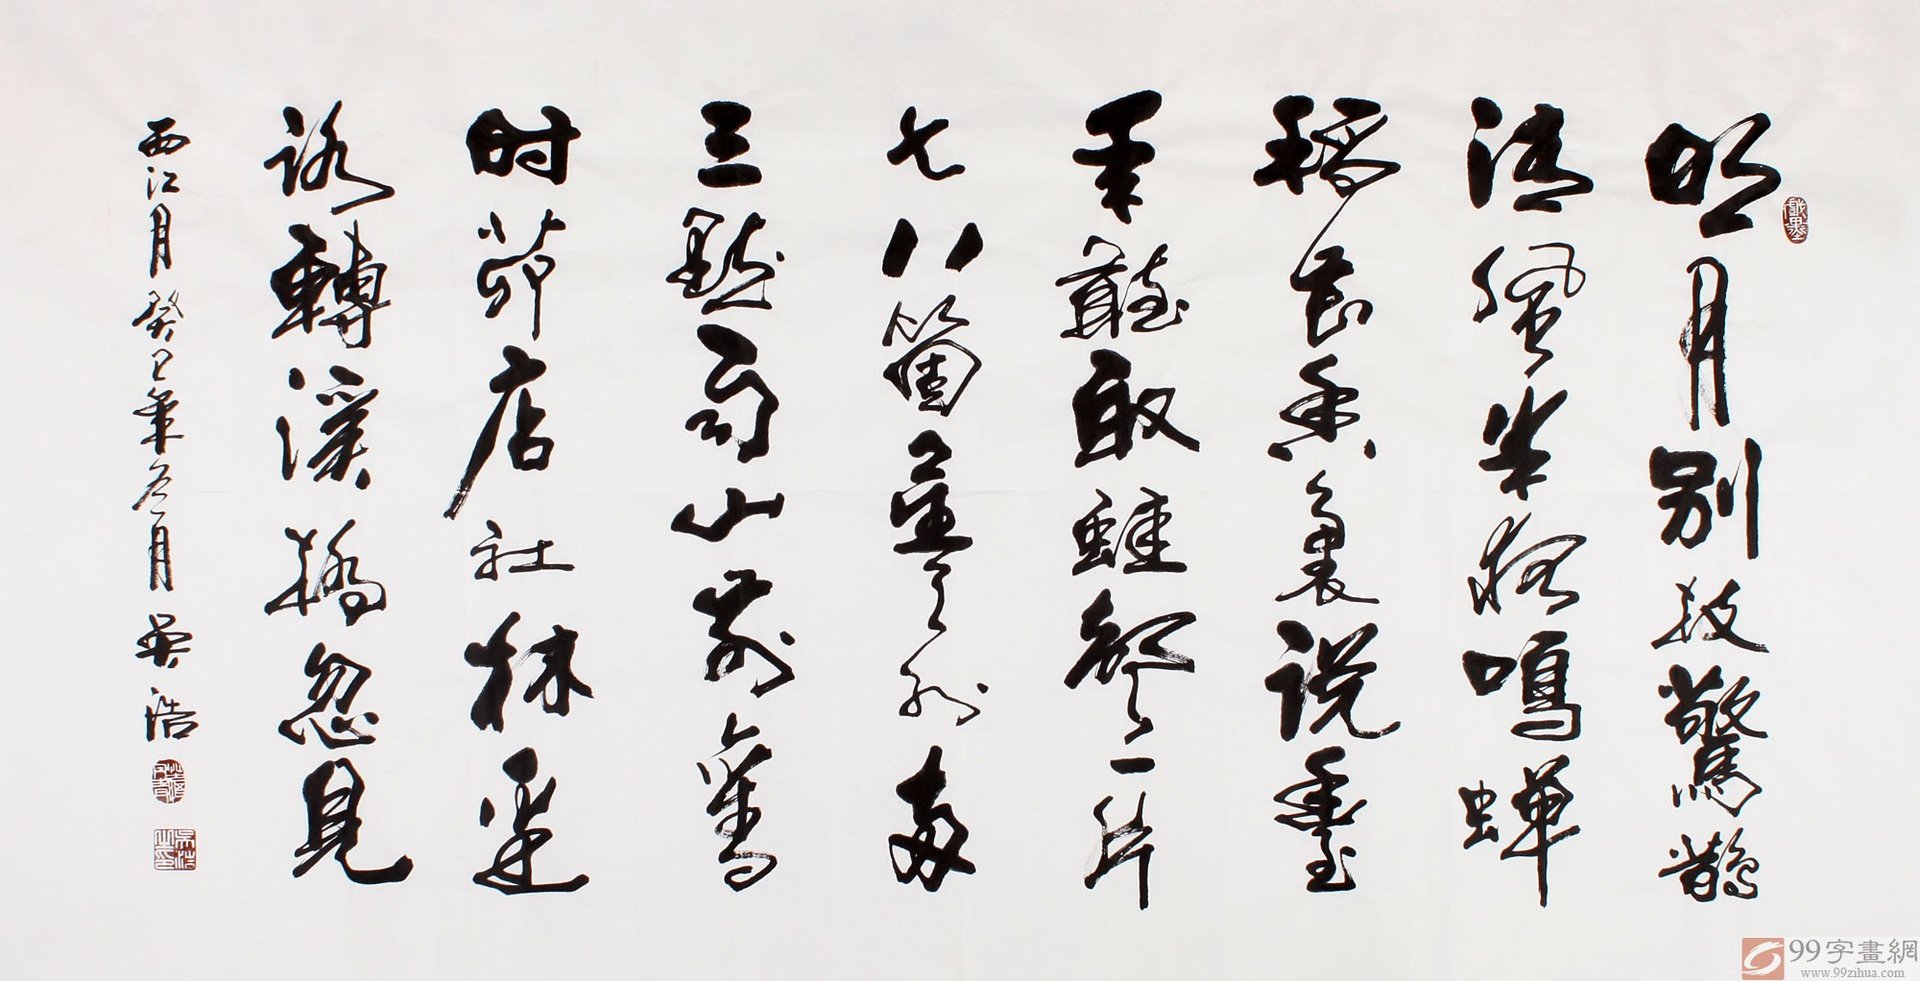 明月别枝驚鵲
清風半夜鳴蟬
稻花香裏説豐
年聽取蛙聲一片
七八箇星天外兩
三點雨山前舊
时茅店社林邊
路轉溪橋忽見
西江月 癸巳年冬月 吴浩
吳浩之印
99字畫網
www.99zihua.com